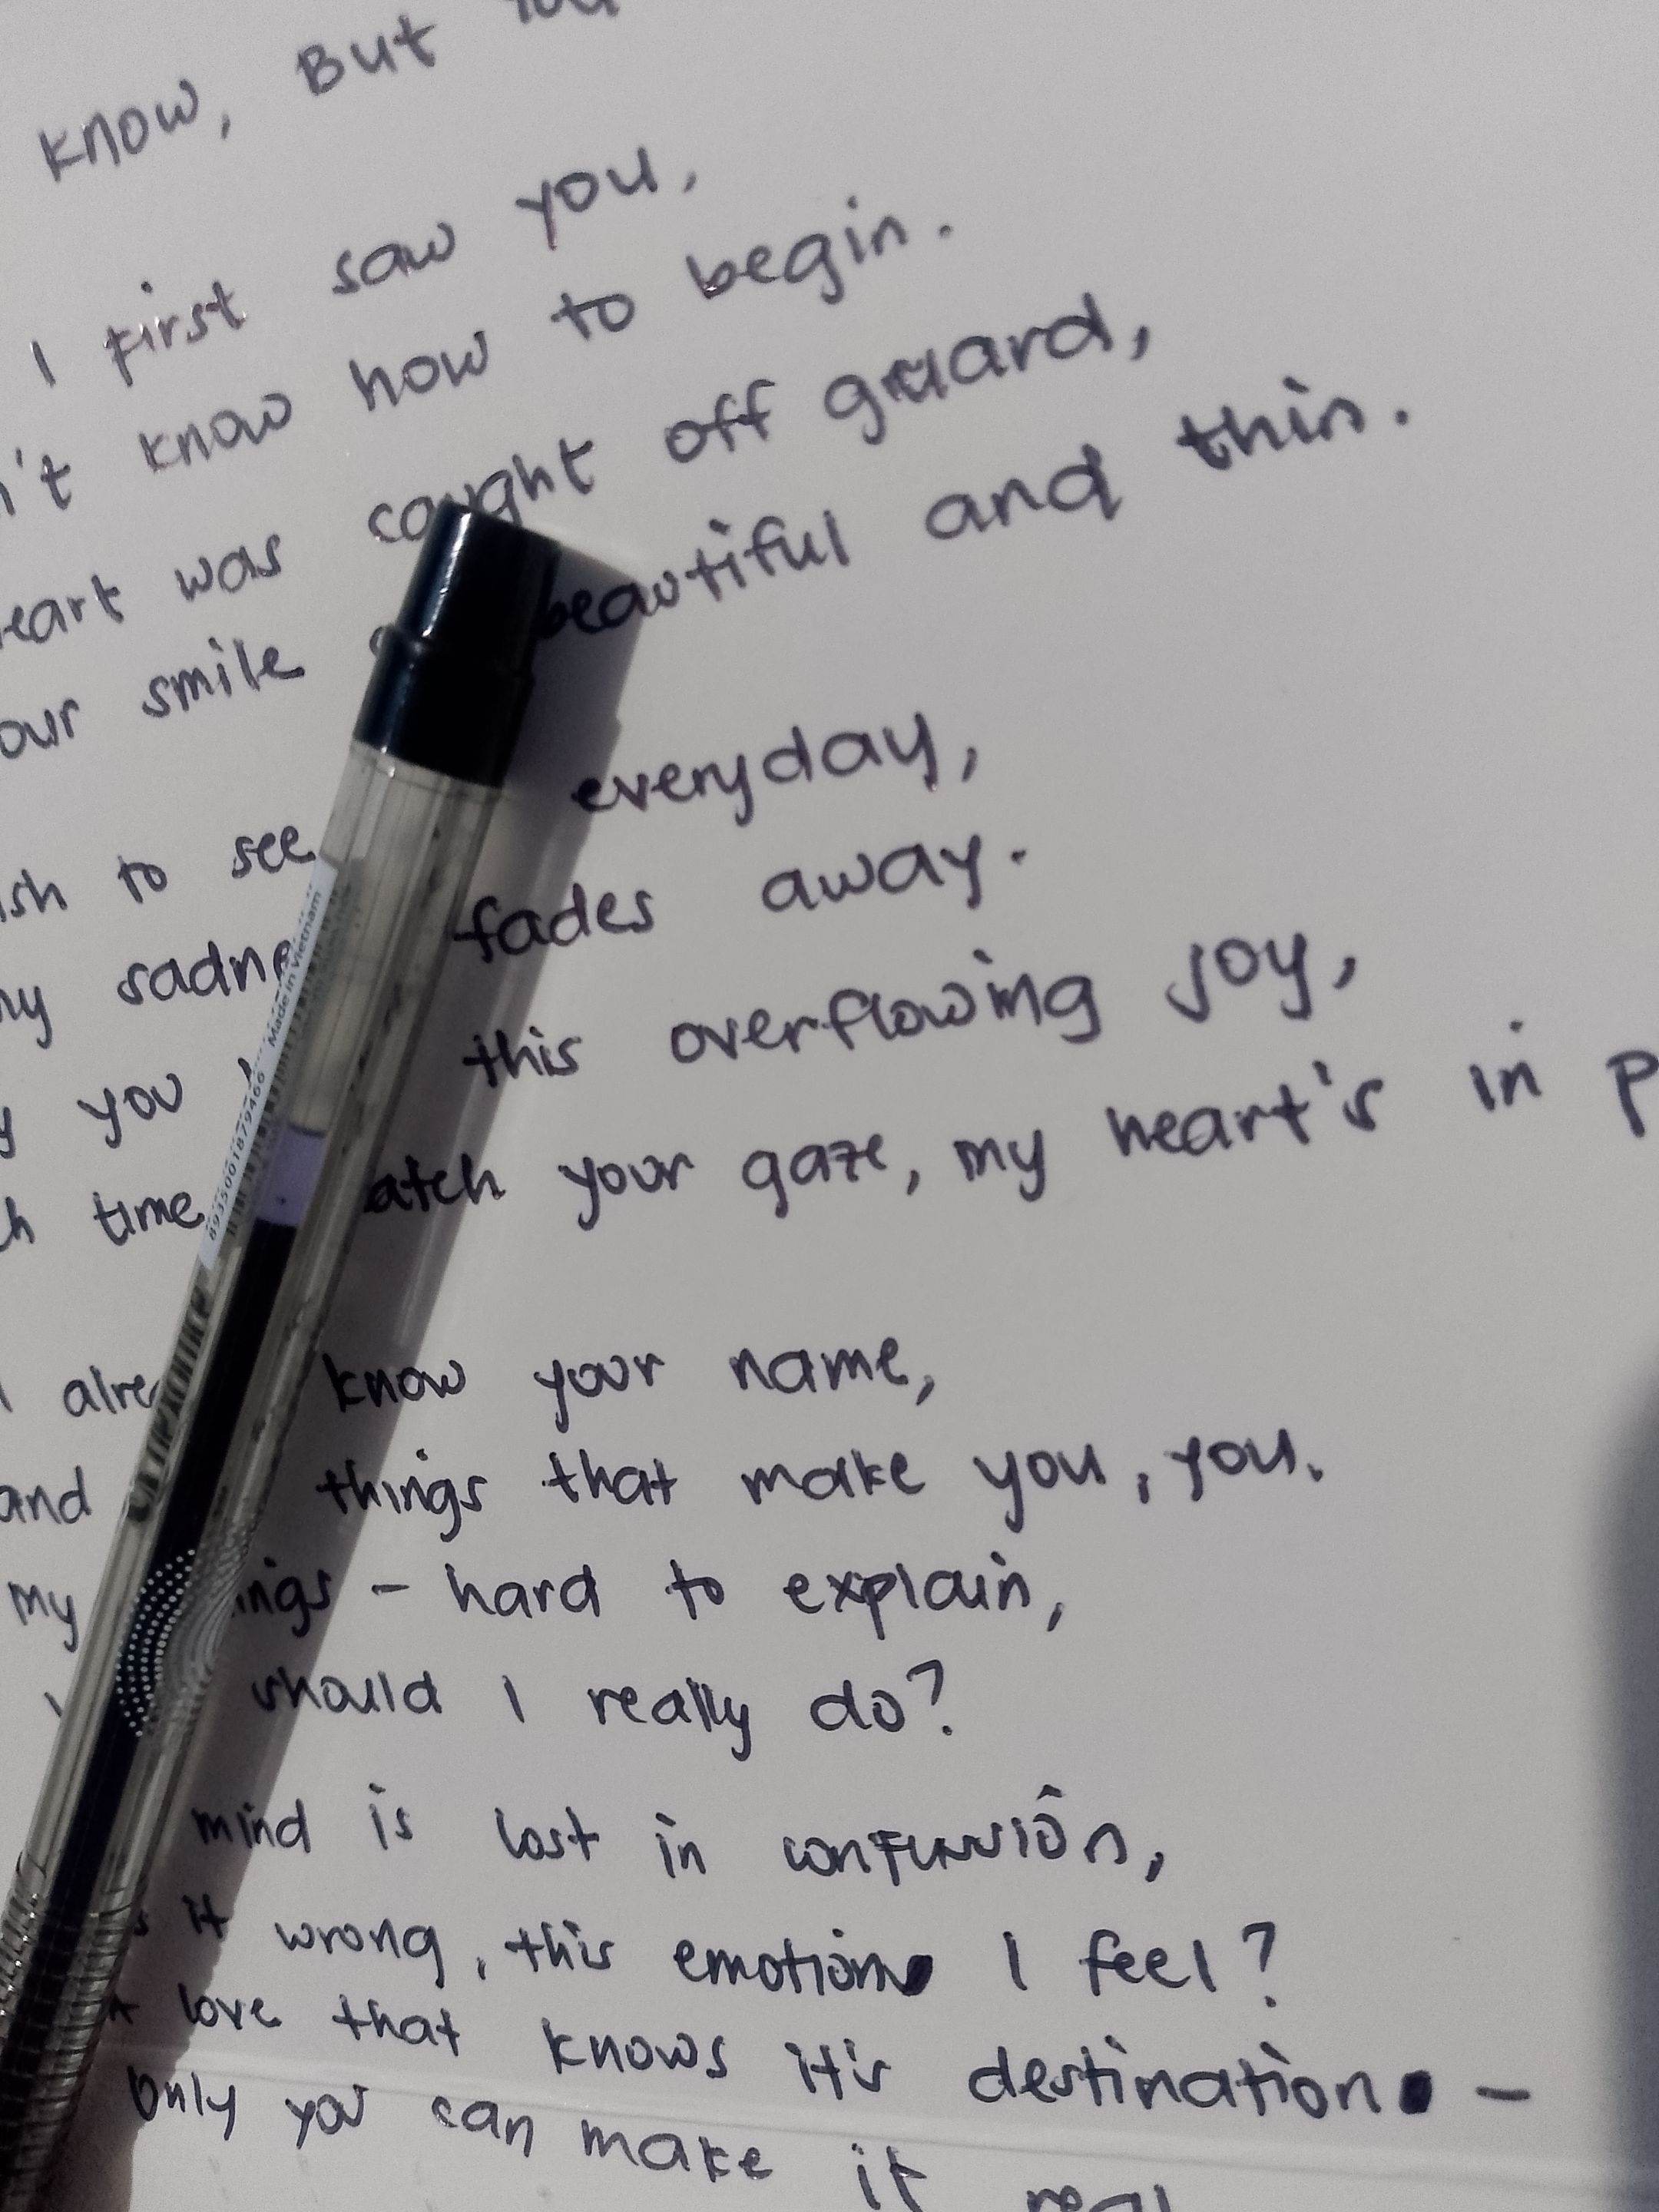 know, But
I first saw you,
n't know how to begin.
eart was caught off guard,
our smile beautiful and thin.
ish to see everyday,
my sadne fades away.
y you this overflowing joy,
ch time atch your gaze, my heart's in P
I alrea know your name,
and things that make you, you.
my ings - hard to explain,
should I really do?
mind is lost in confusion,
s it wrong, this emotion I feel?
love that knows it's destination -
only you can make it real
Made in Vietnam
8935001879466